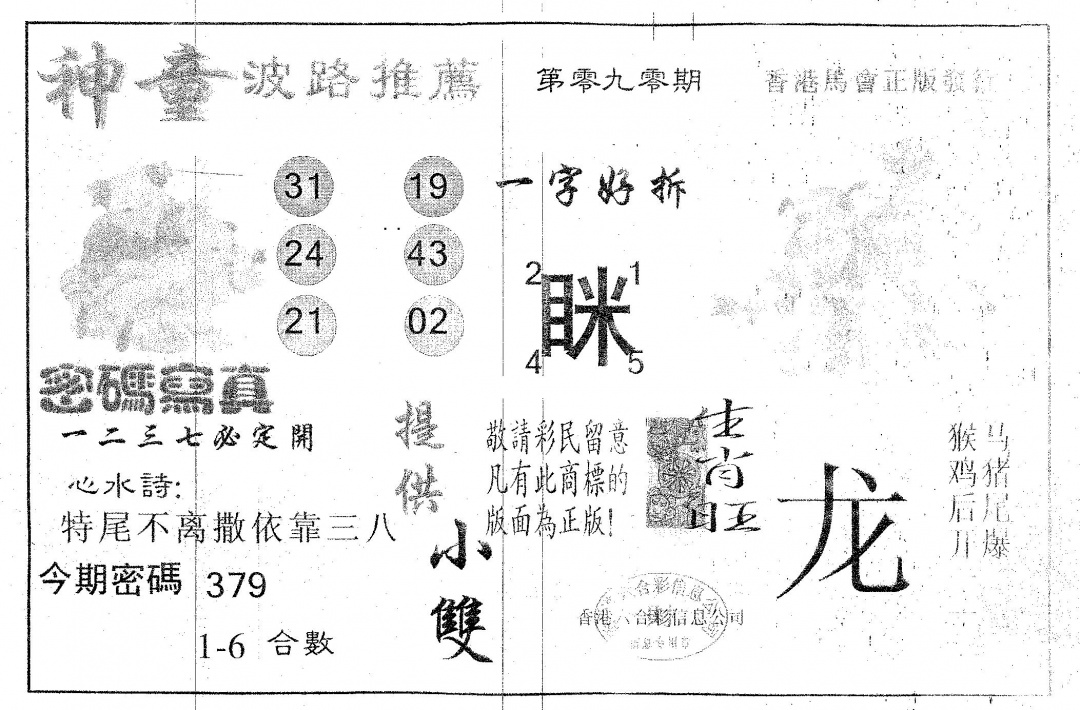 神童 波路推薦 第零九零期 香港馬會正版發行
31 19
24 43
21 02
一字好拆
2 1
眯
4 5
密碼寫真
一二三七必定開
心水詩:
特尾不离撒依靠三八
今期密碼 379
1-6 合數
提供
小雙
敬請彩民留意
凡有此商標的
版面為正版!
生肖旺
龙
马猪尾爆
猴鸡后开
香港六合彩信息公司